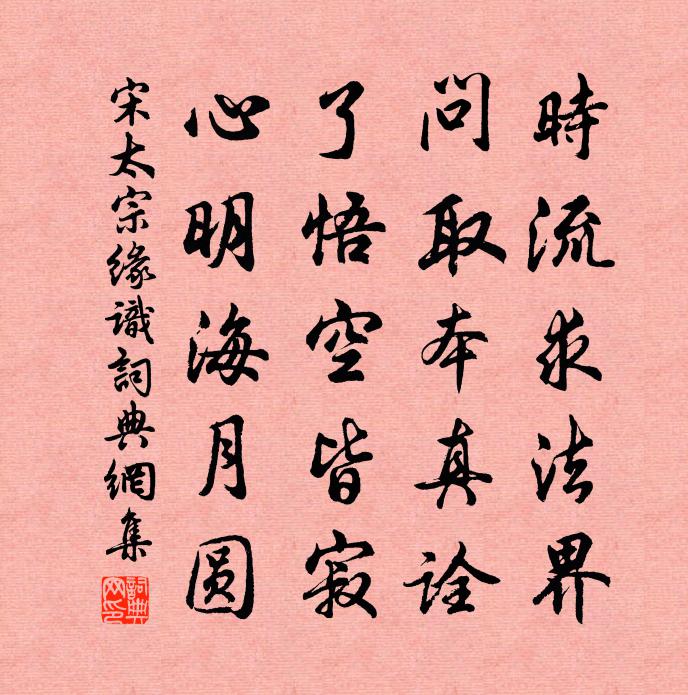 時流求法界
問取本真詮
了悟空皆寂
心明海月圆
宋太宗緣識詞典網集
詞典網印